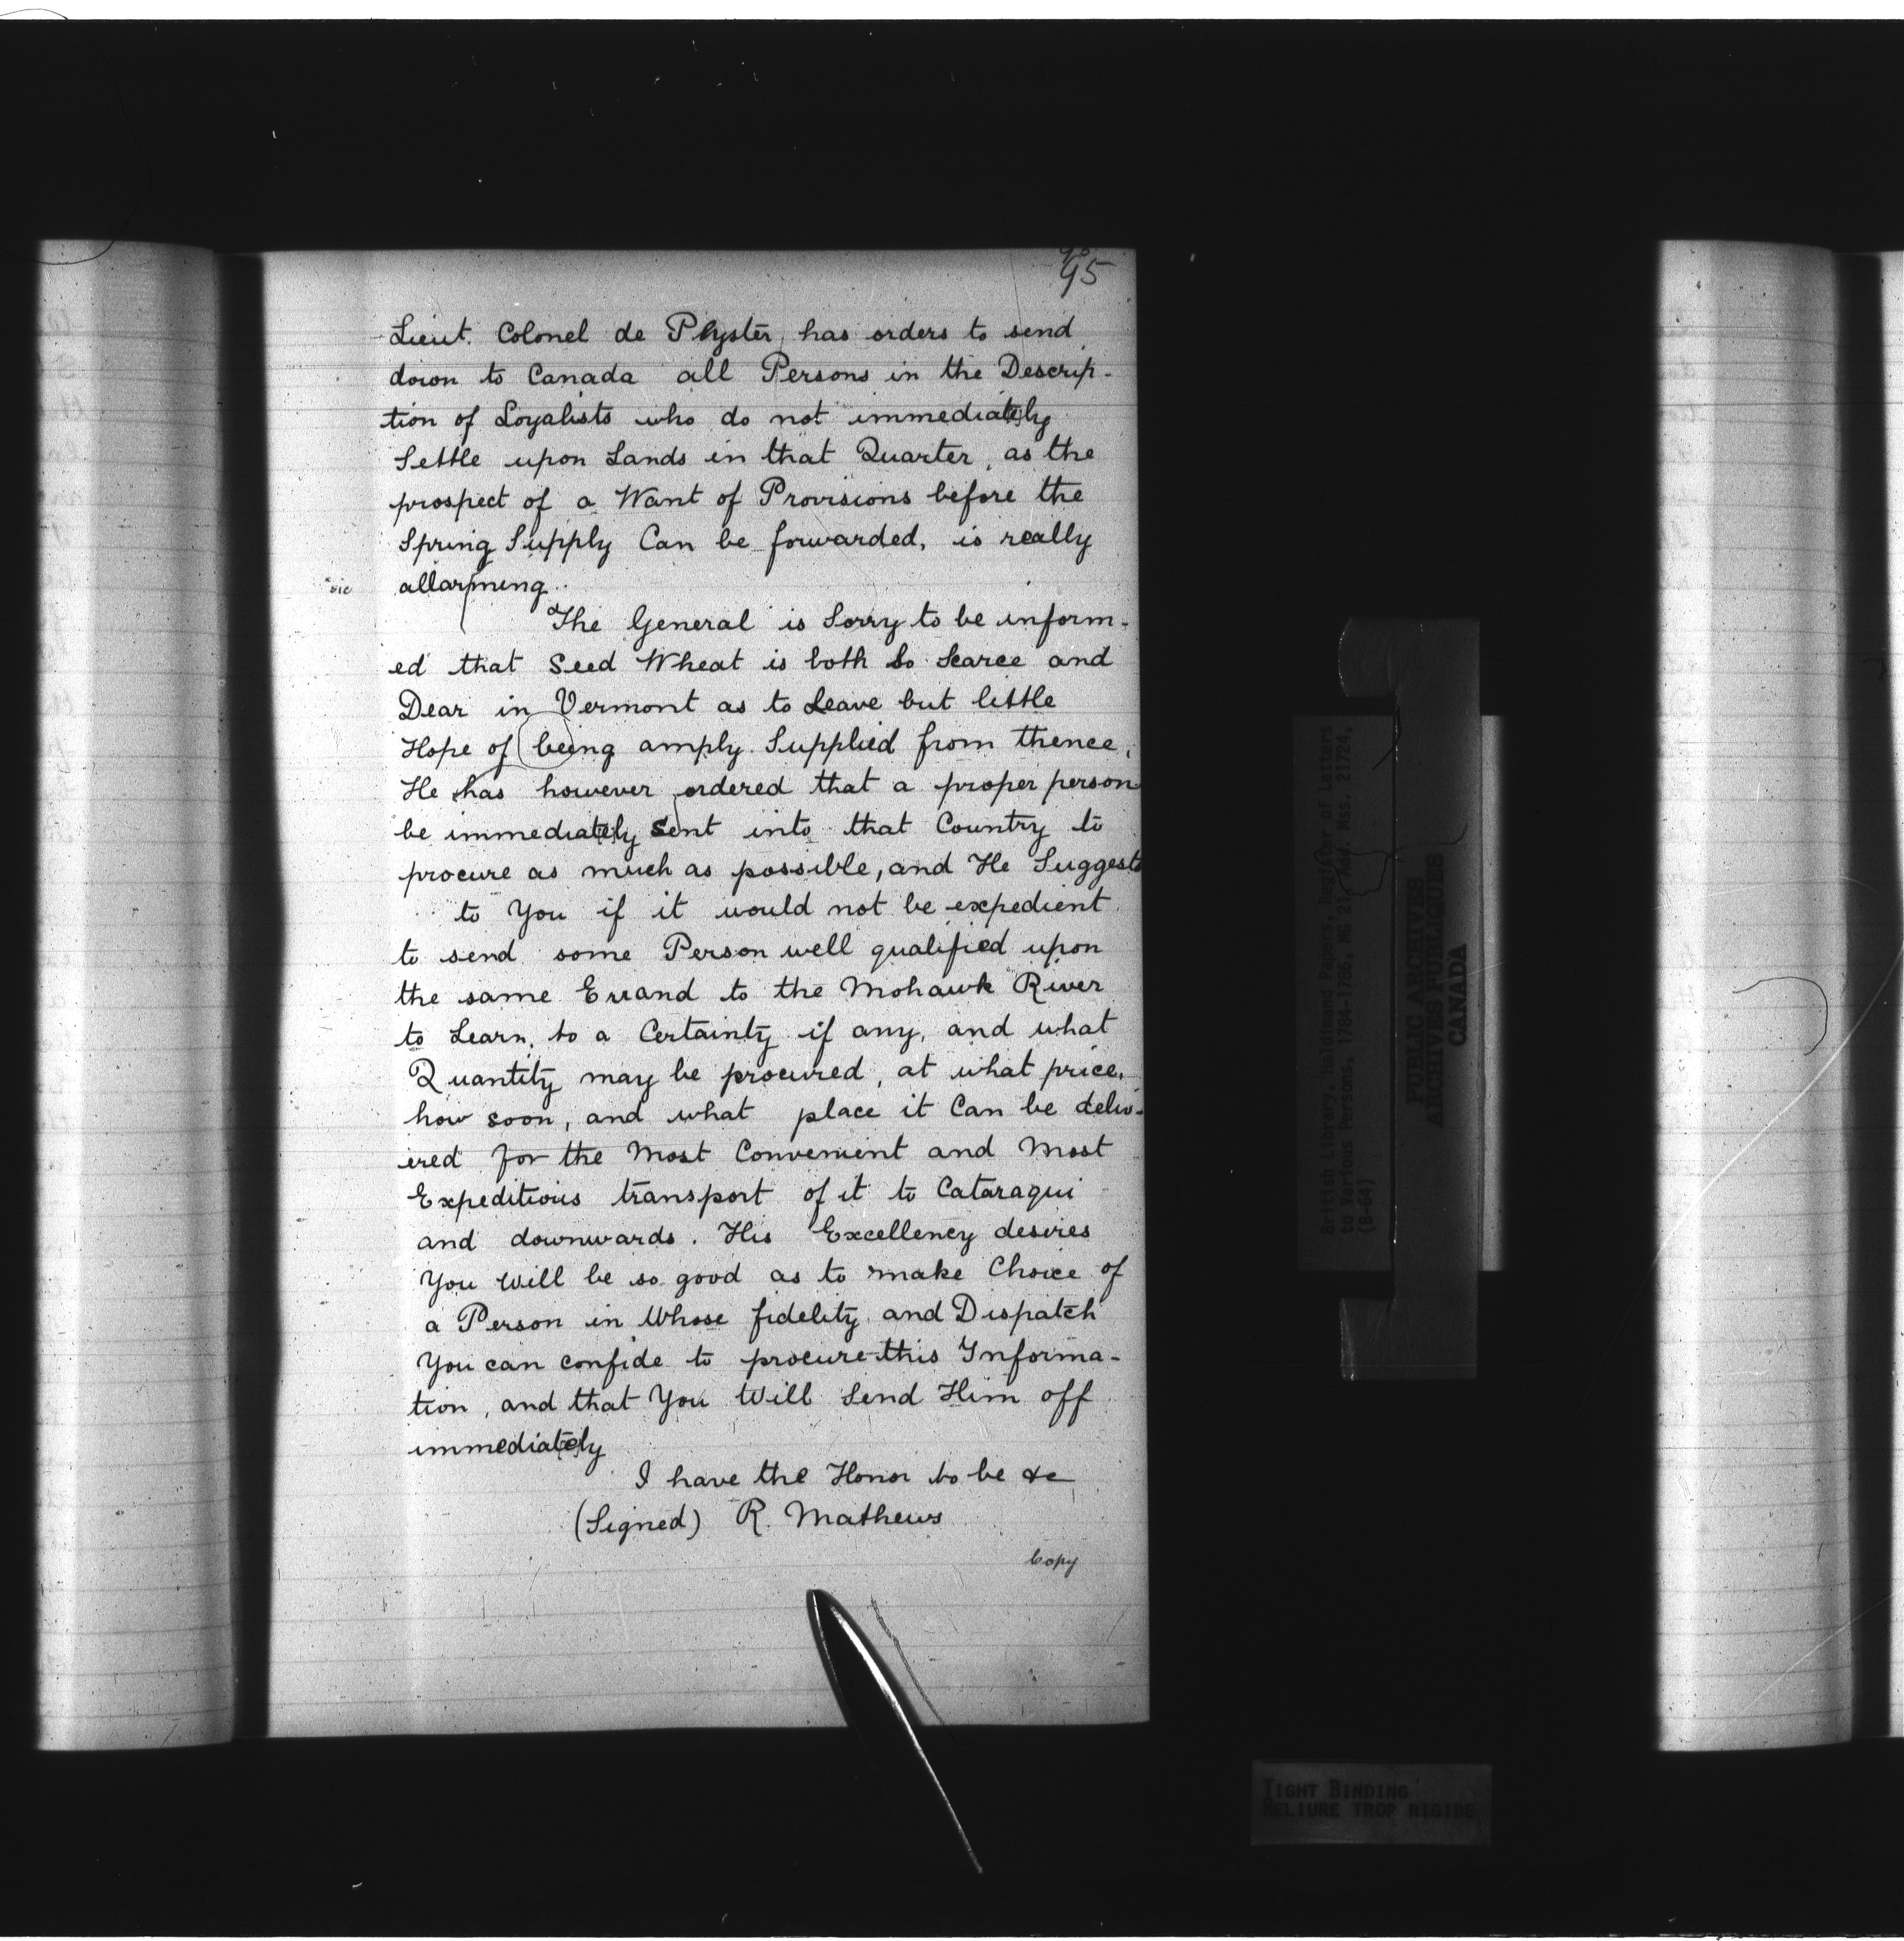 95
Lieut. Colonel de Peyster, has orders to send
down to Canada all Persons in the Descrip-
tion of Loyalists who do not immediately
Settle upon Lands in that Quarter, as the
prospect of a Want of Provisions before the
Spring Supply Can be forwarded, is really
sic allarming.
The General is Sorry to be inform-
ed that Seed Wheat is both So Scarce and
Dear in Vermont as to Leave but little
Hope of being amply Supplied from thence,
He has however ordered that a proper person
be immediately Sent into that Country to
procure as much as possible, and He Suggests
to You if it would not be expedient
to send some Person well qualified upon
the same Errand to the Mohawk River
to Learn, to a Certainty if any, and what
Quantity may be procured, at what price,
how soon, and what place it Can be deliv-
ered for the Most Convenient and Most
Expeditious transport of it to Cataraqui
and downwards. His Excellency desires
You Will be so good as to make Choice of
a Person in Whose fidelity and Dispatch
You can confide to procure this Informa-
tion, and that You Will Send Him off
immediately
I have the Honor to be &c
(Signed) R. Mathews
Copy
British Library. Haldimand Papers. Register of Letters
to Various Persons, 1784-1786, MG 21, Add. Mss. 21724,
(B-64)
PUBLIC ARCHIVES
ARCHIVES PUBLIQUES
CANADA
TIGHT BINDING
RELIURE TROP RIGIDE